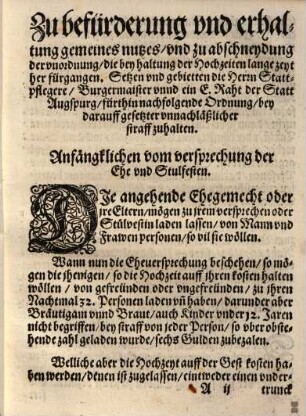 Zu befürderung vnd erhal-
tung gemeines nutzes/vnd zu abschneydung
der vnordnung/die bey haltung der Hochzeiten lange zeyt
her fürgangen. Setzen vnd gebietten die Herrn Statt-
pflegere/Burgermaister vnnd ein E. Raht der Statt
Augspurg/fürthin nachfolgende Ordnung/bey
darauff gesetzter vnnachläßlicher
straff zuhalten.
Anfängklichen vom versprechung der
Ehe vnd Stulfesten.
DIe angehende Ehegemecht oder
jre Eltern/mögen zu jrem versprechen oder
Stůlvestin laden lassen/von Mann vnd
Frawen personen/so vil sie wöllen.
Wann nun die Eheuersprechung beschehen/so mö-
gen die jhenigen/so die Hochzeit auff jhren kosten halten
wöllen/von gefreündten oder vngefreündten/zu jhren
Nachtmal 32. Personen laden vñ haben/darunder aber
Bräutigam vnnd Braut/auch Kinder vnder 12. Jaren
nicht begriffen/bey straff von jeder Person/so vber obste-
hende zahl geladen wurde/sechs Gulden zubezalen.
Welliche aber die Hochzeyt auff der Gest kosten ha-
ben werden/denen ist zugelassen/eintweder einen vnder-
A ij trunck